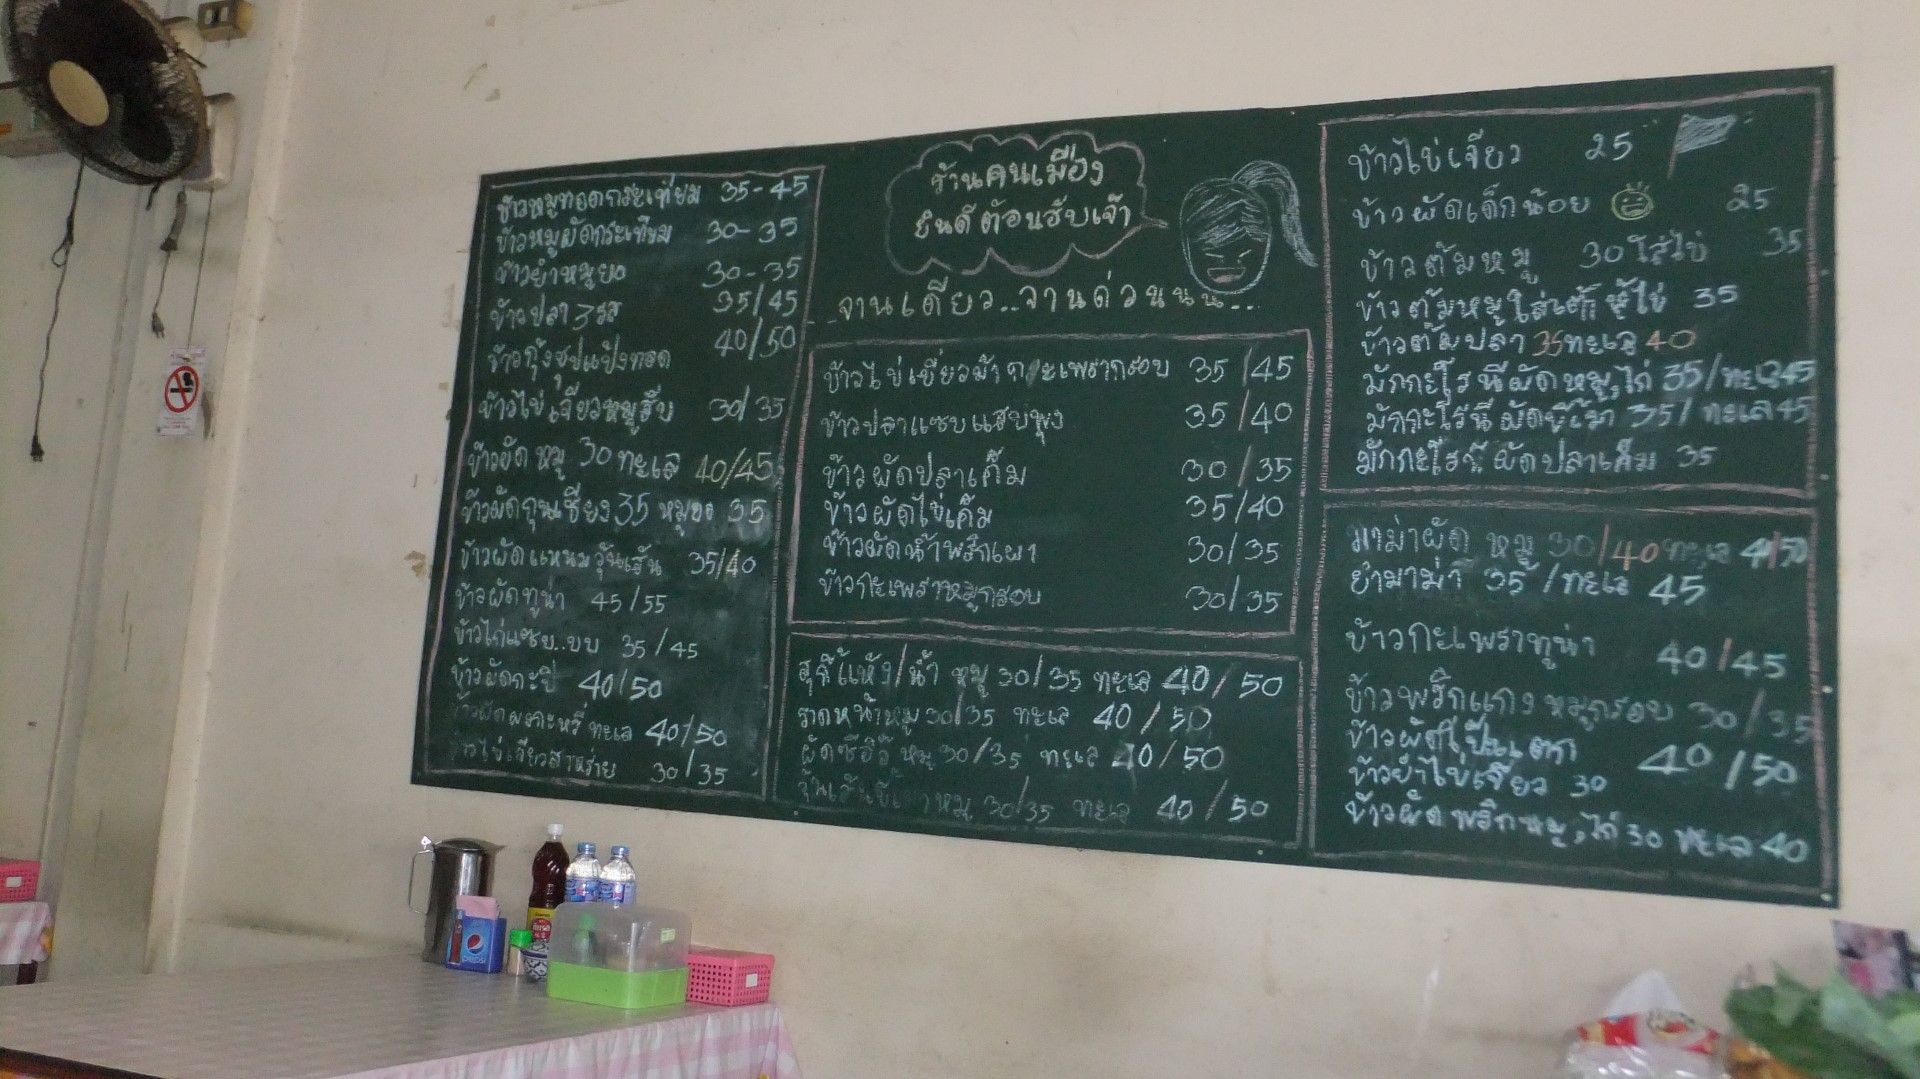 ร้านคนเมือง
ยินดีต้อนรับเจ้า
จานเดียว..จานด่วนนน...
ข้าวหมูทอดกระเทียม 35-45
ข้าวหมูผัดกระเทียม 30-35
ข้าวยำหมูยอ 30-35
ข้าวปลา 3 รส 35/45
ข้าวกุ้งชุปแป้งทอด 40/50
ข้าวไข่เจียวหมูสับ 30/35
ข้าวผัดหมู 30 ทะเล 40/45
ข้าวผัดกุนเชียง 35 หมูยอ 35
ข้าวผัดแหนมวุ้นเส้น 35/40
ข้าวผัดทูน่า 45/55
ข้าวไก่แซบ..บบ 35/45
ข้าวผัดกะปิ 40/50
ข้าวผัดผงกะหรี่ทะเล 40/50
ข้าวไข่เจียวสาหร่าย 30/35
ข้าวไข่เยี่ยวม้ากะเพรากรอบ 35/45
ข้าวปลาแซบแสบพุง 35/40
ข้าวผัดปลาเค็ม 30/35
ข้าวผัดไข่เค็ม 35/40
ข้าวผัดน้ำพริกเผา 30/35
ข้าวกะเพราหมูกรอบ 30/35
สุกี้แห้ง/น้ำ หมู 30/35 ทะเล 40/50
ราดหน้าหมู 30/35 ทะเล 40/50
ผัดซีอิ๊วหมู 30/35 ทะเล 40/50
วุ้นเส้นขี้เมาหมู 30/35 ทะเล 40/50
ข้าวไข่เจียว 25
ข้าวผัดเด็กน้อย 25
ข้าวต้มหมู 30 ใส่ไข่ 35
ข้าวต้มหมูใส่เต้าหู้ไข่ 35
ข้าวต้มปลา 35 ทะเล 40
มักกะโรนีผัดหมู,ไก่ 35/ทะเล 45
มักกะโรนีผัดขี้เมา 35/ทะเล 45
มักกะโรนีผัดปลาเค็ม 35
มาม่าผัด หมู 30/40 ทะเล
ยำมาม่า 35/ทะเล 45
ข้าวกะเพราทูน่า 40/45
ข้าวพริกแกงหมูกรอบ 30/35
ข้าวผัดโป๊ะแตก 40/50
ข้าวยำไข่เจียว 30
ข้าวผัดพริกหมู,ไก่ 30 ทะเล 40
pepsi